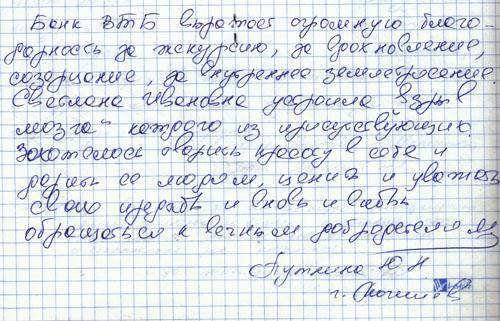 Банк ВТБ выражает огромную благо-
дарность за экскурсию, за вдохновление,
созерцание, за внутреннее землетрясение.
Светлана Ивановна устроила взрыв
мозга" каждого из присутствующих.
Захотелось творить красоту в себе и
дарить ее людям, ценить и уважать
свою и вновь и вновь
обращаться к вечным добродетелям
Путкина Ю Н
г.